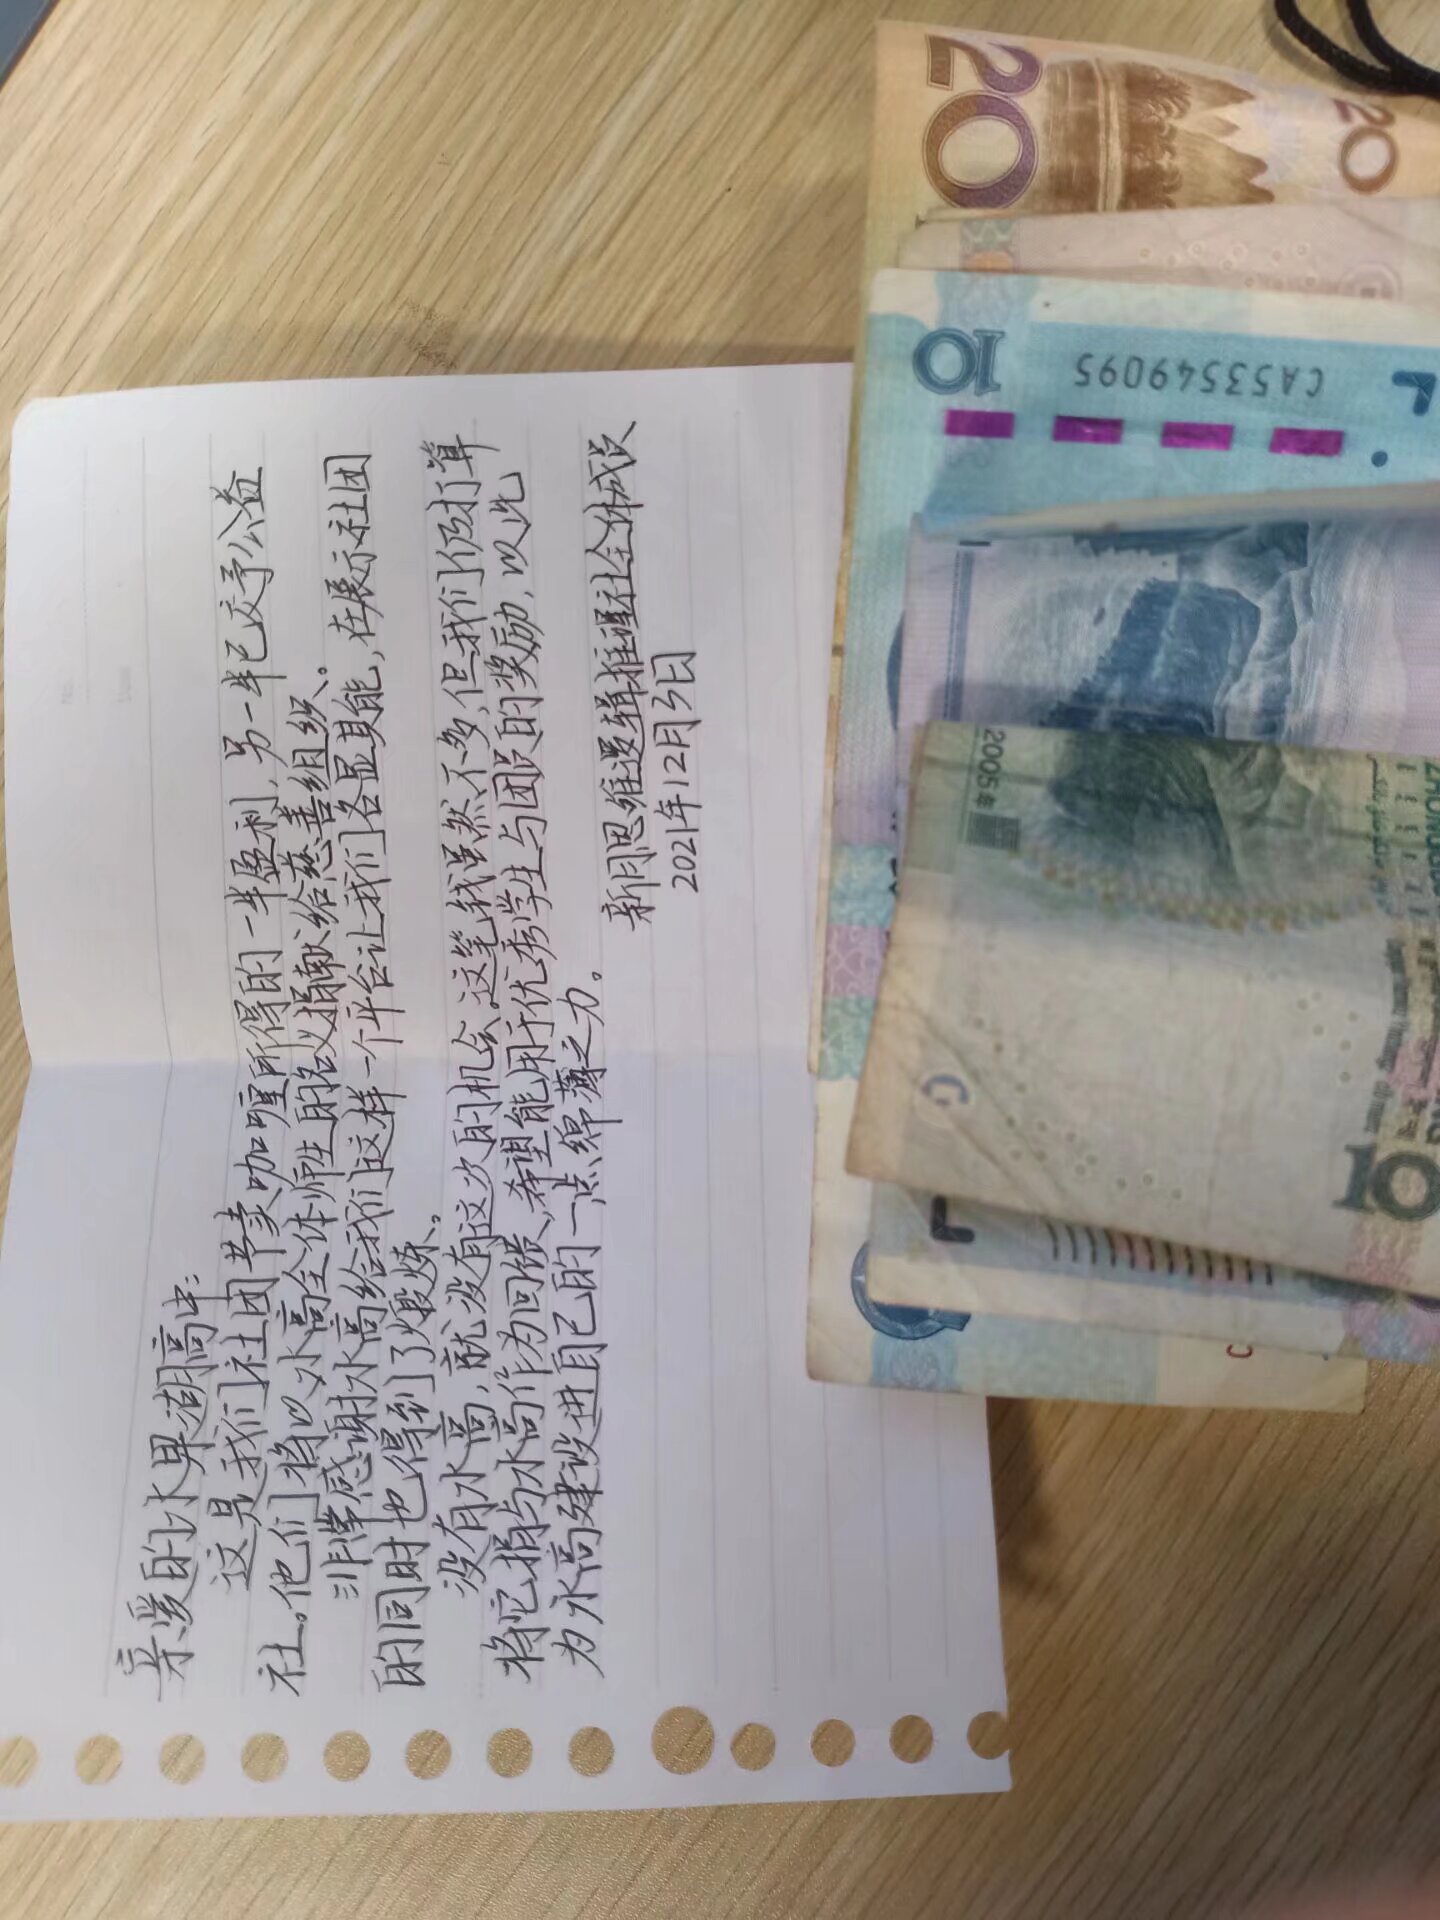 亲爱的水果湖高中:
这是我们社团节卖咖喱所得的一半盈利,另一半已交予公益
社。他们将以水高全体师生的名义捐献给慈善组织。
非常感谢水高给我们这样一个平台让我们各显其能,在展示社团
的同时也得到了煅炼。
没有水高,就没有这次的机会。这笔钱虽然不多,但我们仍打算
将它捐与水高作为回馈、希望能用于优秀学生与团员的奖励,以此
为水高建设进自己的一点绵薄之力。
新月思维逻辑推理社全体成员
2021年12月3日
20
20
10
CA53549095
2005年
10